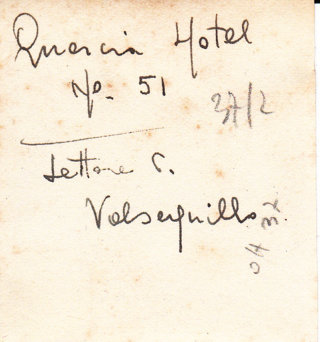 Quercia Hotel
No. 51
37/2
Lettore C.
Valsequillo